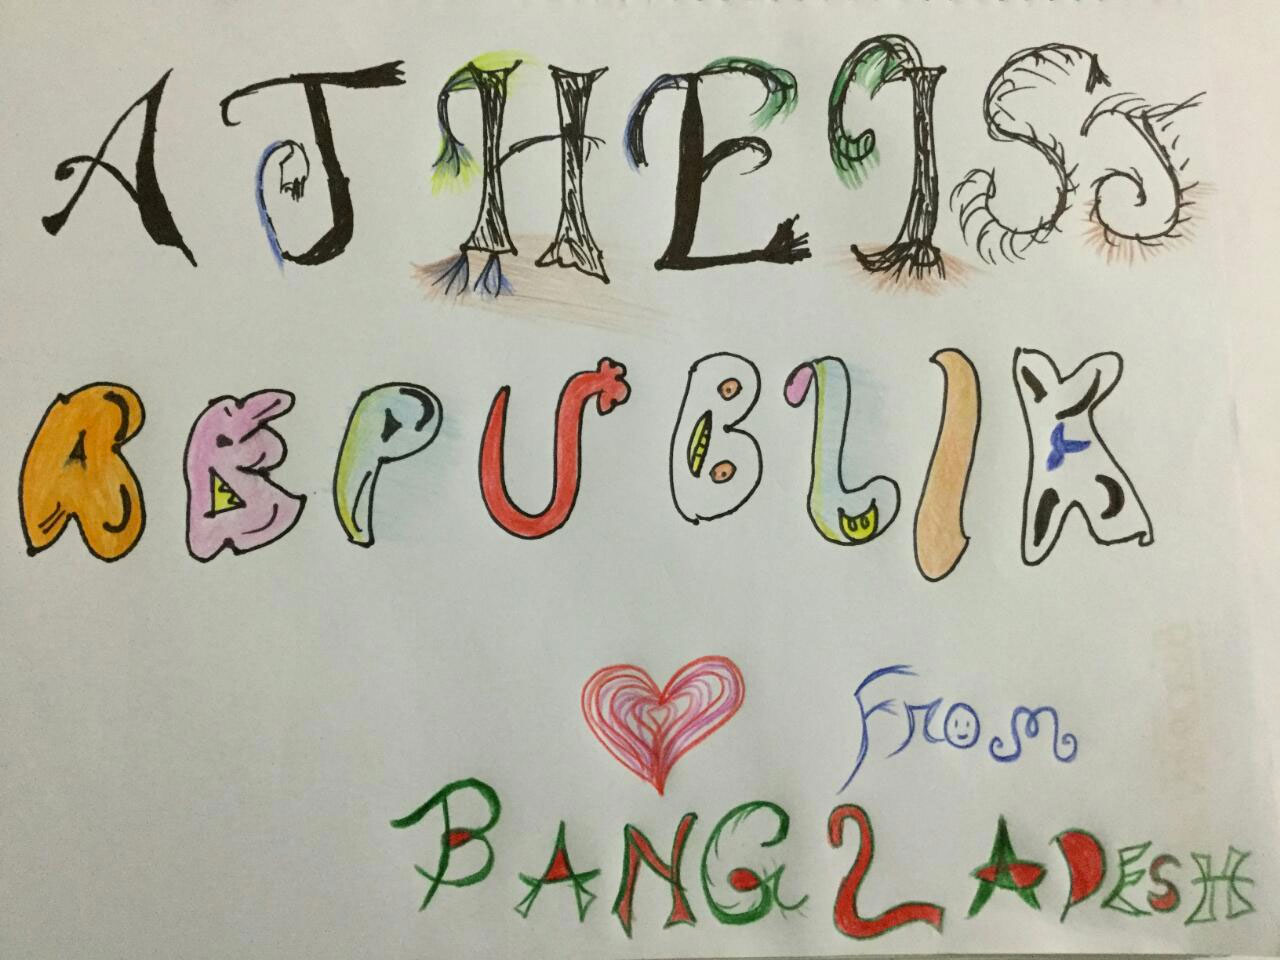 ATHEIST
REPUBLIK
From
BANGLADESH